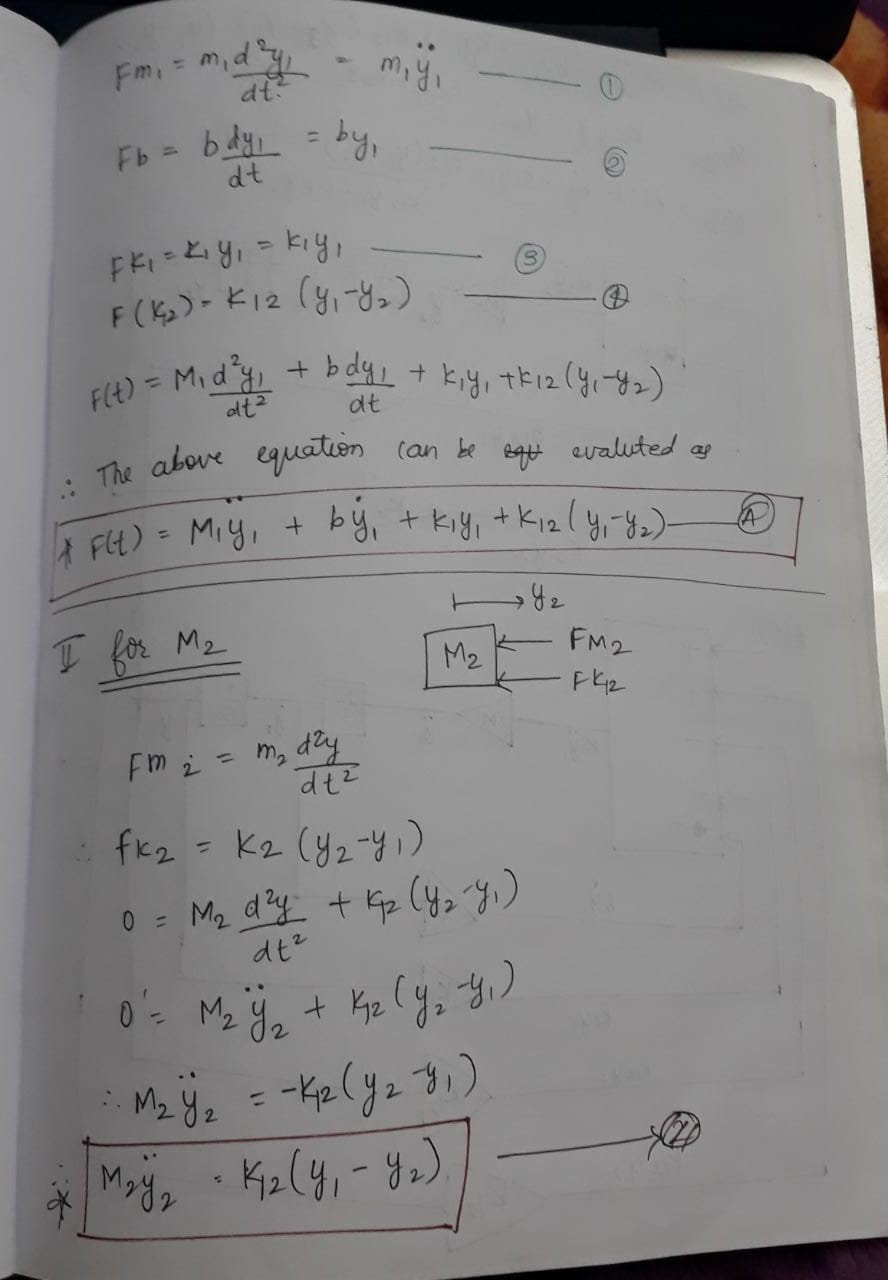 Fm₁ = m₁ d²y₁/dt² = m₁ÿ₁ ——— ①
Fb = b dy₁/dt = by₁ ——— ②
FK₁ = K₁y₁ = K₁y₁ ——— ③
F(K₁₂) = K12 (y₁-y₂) ——— ④
F(t) = M₁ d²y₁/dt² + b dy₁/dt + K₁y₁ + K12 (y₁-y₂)
∴ The above equation can be evaluted as
* F(t) = M₁ÿ₁ + bẏ₁ + K₁y₁ + K₁₂ (y₁-y₂) —— Ⓐ
II for M₂
y₂
M₂
FM₂
FK₁₂
Fm₂ = m₂ d²y/dt²
∴ fK₂ = K₂ (y₂-y₁)
0 = M₂ d²y/dt² + K₁₂ (y₂-y₁)
0 = M₂ÿ₂ + K₁₂ (y₂-y₁)
∴ M₂ÿ₂ = -K₁₂ (y₂-y₁)
* M₂ÿ₂ = K₁₂ (y₁-y₂)